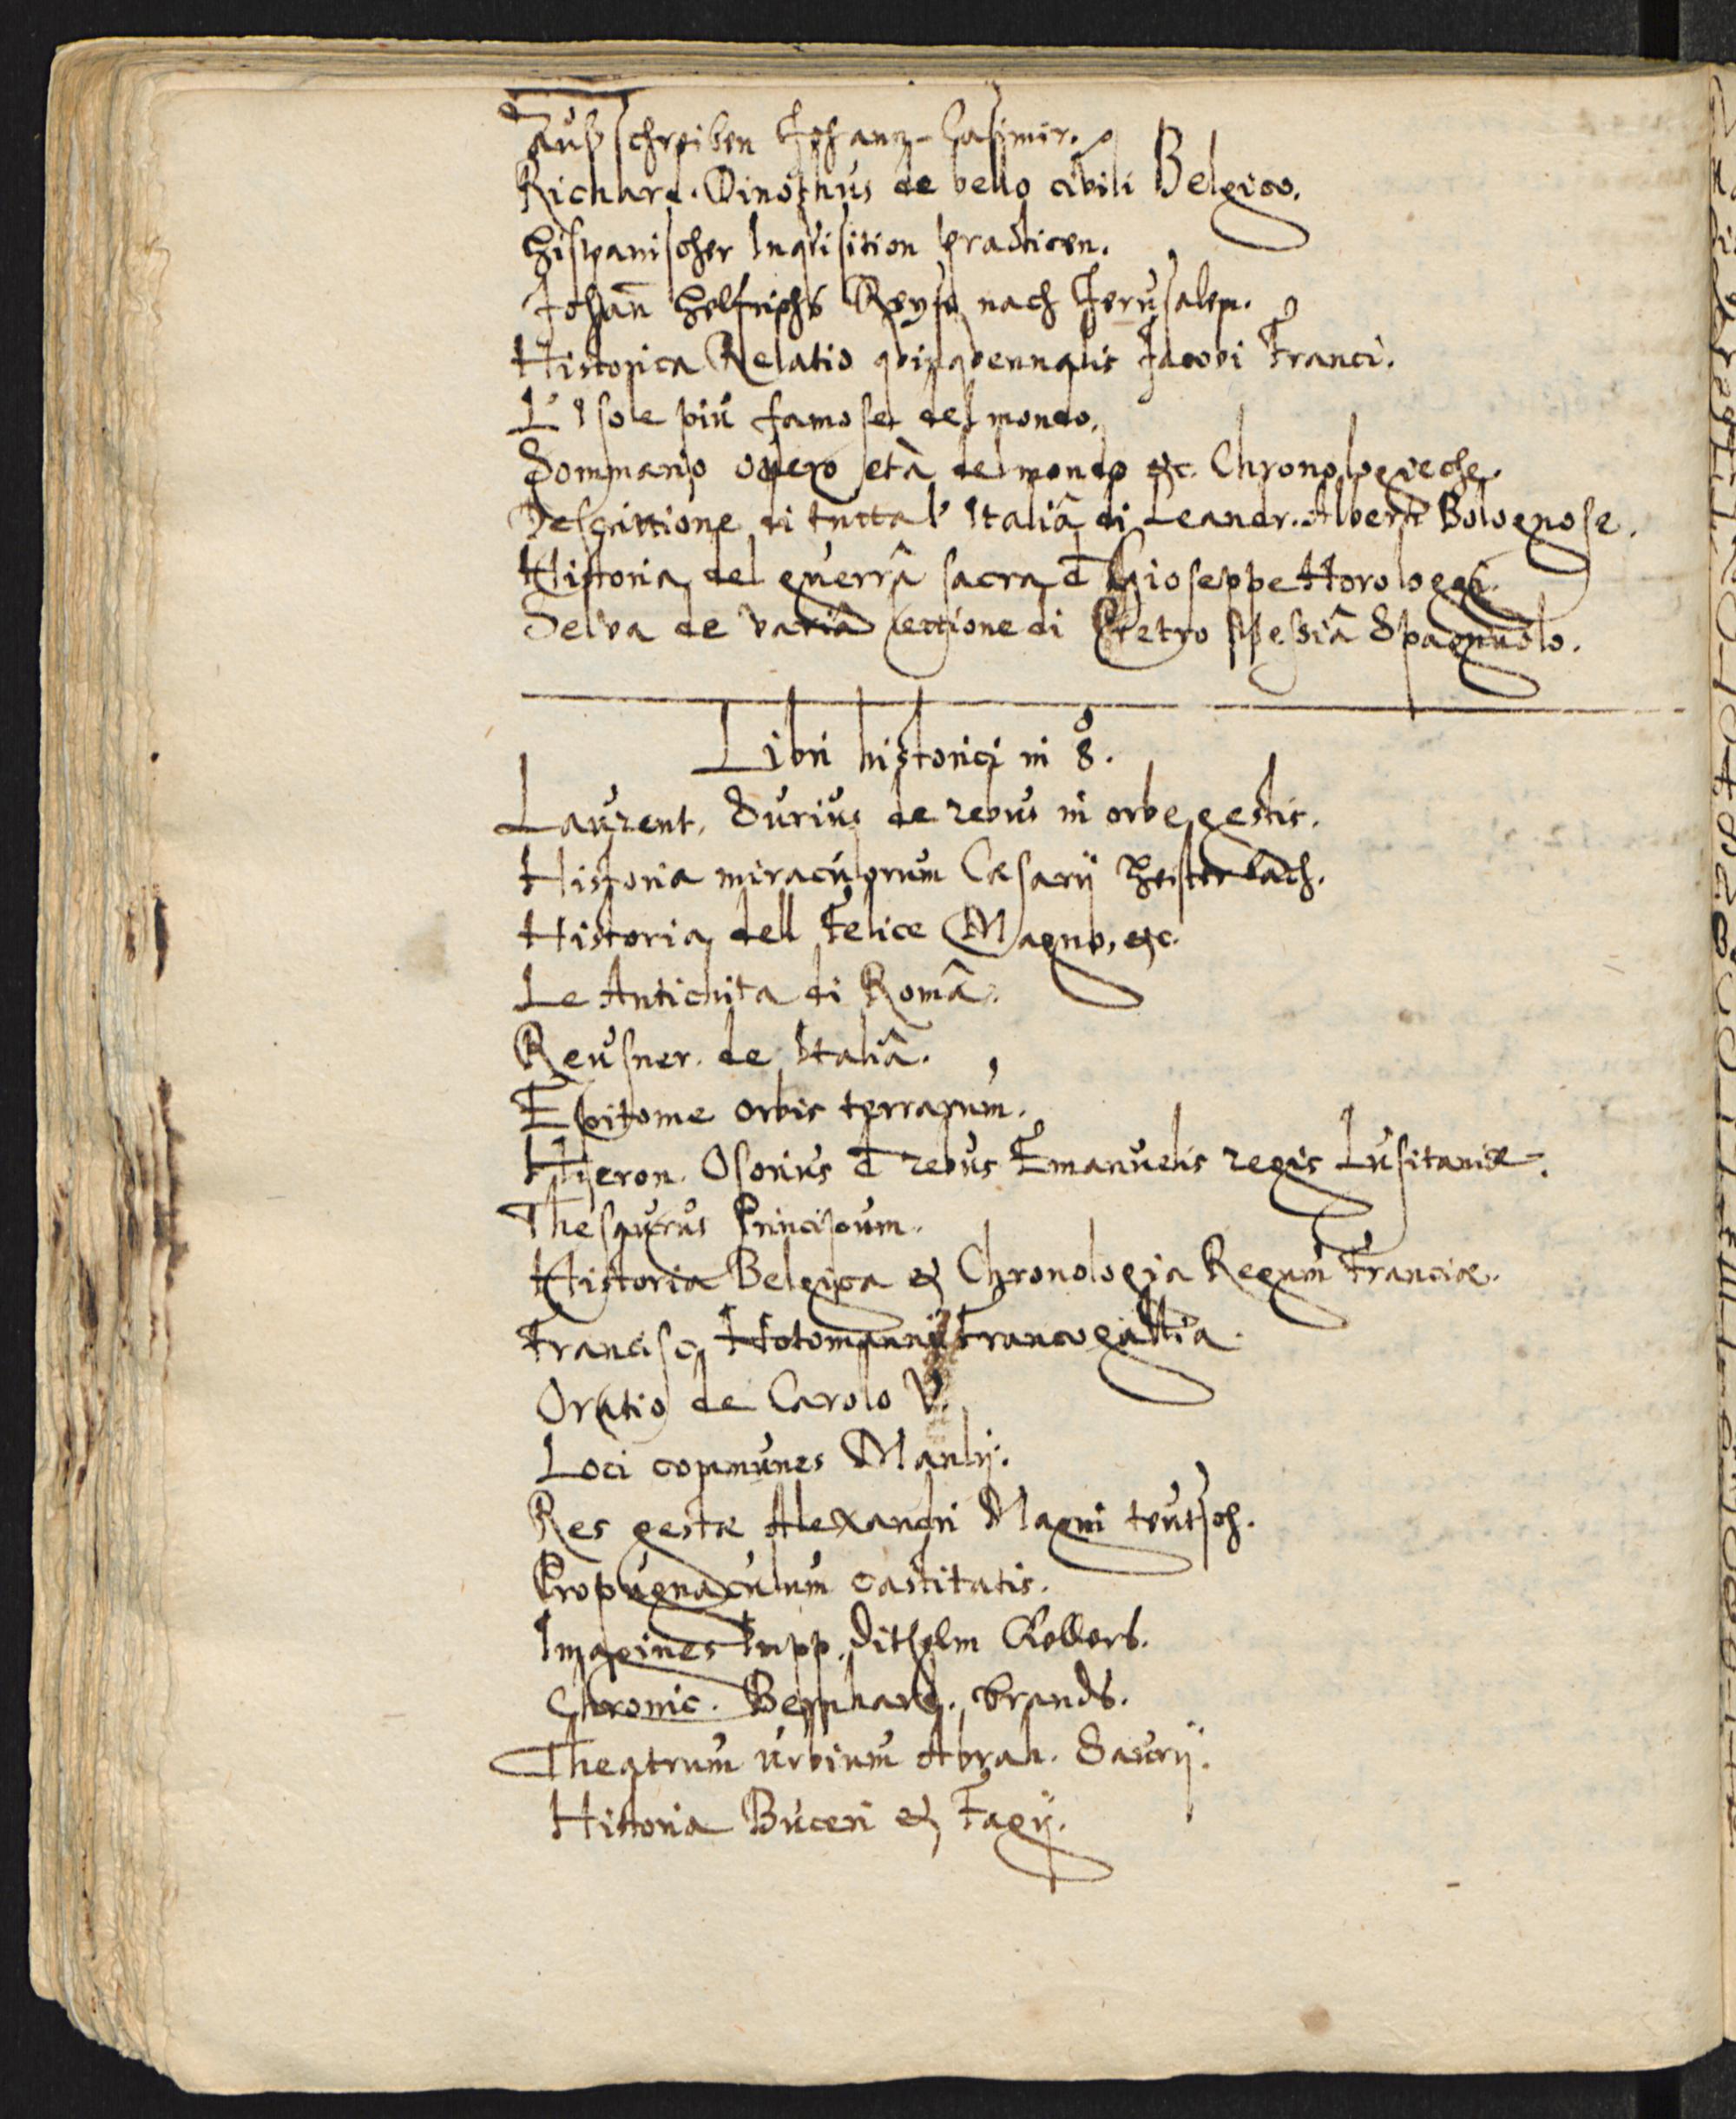 Außschreiben Johanz-Casimir.
Richard. Dinothus de bello civili Belgico.
Hispanischer Inquisition practicen.
Johañ Helfrichs Reyse nach Jerusalem.
Historica Relatio qvinqvennalis Jacobi Franci.
L' Isole più famose del mondo.
Sommario overo età del mondo &c. Chronologieche.
Descrittione di tutta l' Italiâ di Leandr. Alberti Bolognose.
Historia del guerrâ sacra d̄ Gioseppe Horologgi.
Selva de variâ lettione di Pietro Messiâ Spagnuolo.
Libri historici in 8.
Laurent. Surius de rebus in orbe gestis.
Historia miraculorum Cæsarij Heisterbach.
Historia dell Felice Magno, &c.
Le Antichita di Româ.
Reusner. de Italiâ.
Epitome orbis terrarum.
Hieron. Osorius d̄ rebus Emanuelis regis Lusitaniæ.
Thesaurus Principum.
Historia Belgica & Chronologia Regum Franciæ.
Francisc. Hotomannij Francogallia.
Oratio de Carolo V.
Loci communes Manlij.
Res gestæ Alexandri Magni teutsch.
Propugnaculum castitatis.
Imagines Impp. Dithelm Kellers.
Chronic. Bernhard. Brands.
Theatrum urbium Abrah. Saurij.
Historia Buceri & Fagij.